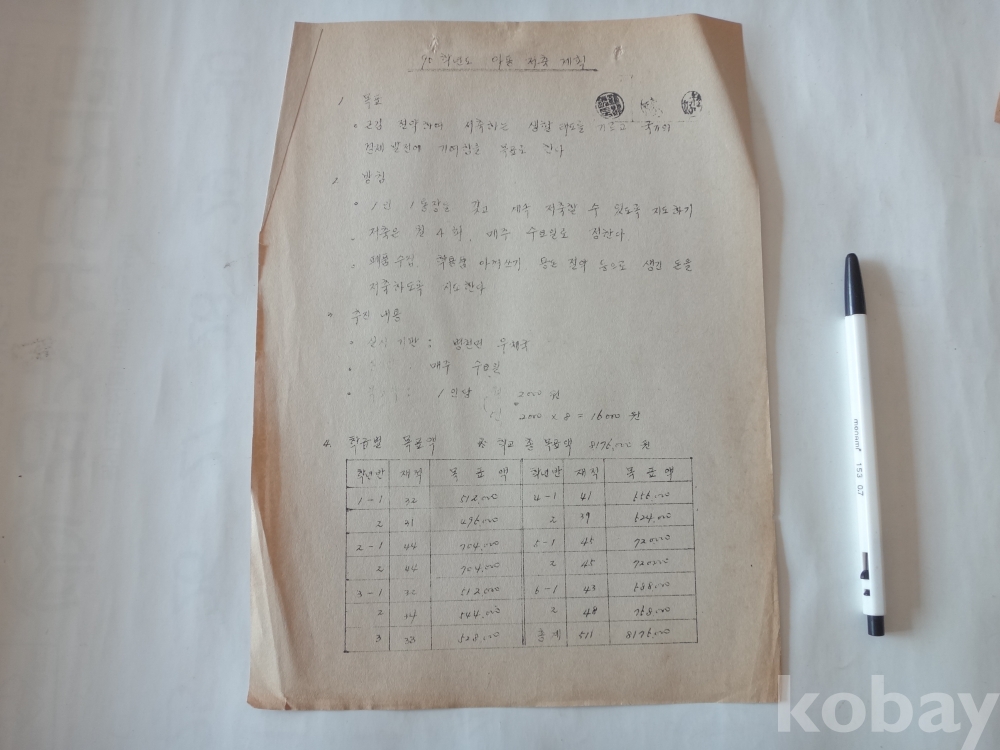 75 학년도 아동 저축 계획
1 목표
근검 절약하여 저축하는 생활 태도를 기르고 국가의
경제 발전에 기여함을 목표로 한다
2 방침
1인 1통장을 갖고 계속 저축할 수 있도록 지도하기
저축은 월 4회, 매주 수요일로 정한다
폐품 수집, 학용품 아껴쓰기 용돈 절약 등으로 생긴 돈을
저축하도록 지도한다
3 추진 내용
실시 기관 : 병천면 우체국
매주 수요일
1인당 2000원
2000 x 8 = 16000 원
4. 학급별 목표액 총 목표액 8176,000 원
학년반 재적 목표액 학년반 재적 목표액
1-1 32 512,000 4-1 41 656,000
2 31 496,000 2 39 624,000
2-1 44 704,000 5-1 45 720000
2 44 704,000 2 45 720000
3-1 32 512,000 6-1 43 688,000
2 34 544,000 2 48 768,000
3 33 528,000 총계 511 8176,000
monami 153 0.7
kobay